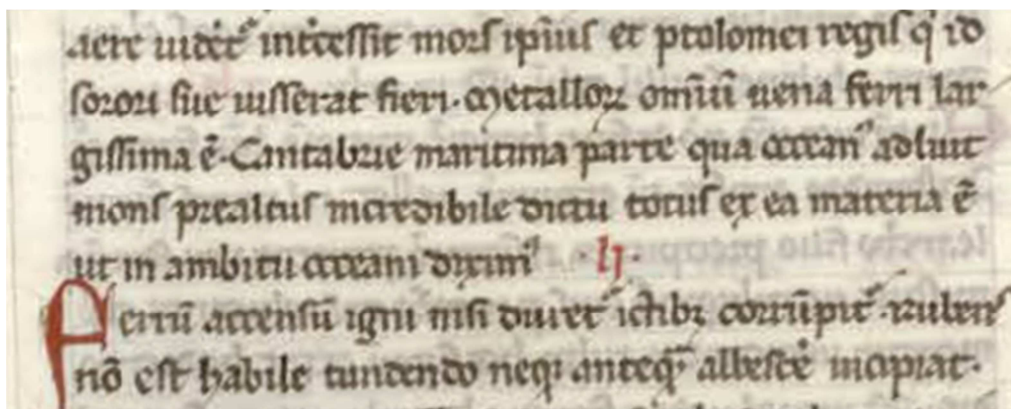 aere uidet᷑ int̃cessit mors ipius et ptolomei regis q̇ id
sorori sue iusserat fieri. Metalloꝝ om̄iū uena ferri lar
gissima ē. Cantabrie maritima parte qua occeanꝰ adluit
mons prealtus incredibile dictu totus ex ea materia ē
ut in ambitu occeani diximꝰ .lj.
Ferrū accensū igni nisi duret᷑ ictibꝫ corrūpit᷑. rubens
nō est habile tundendo neqꝫ anteq̄ albesce᷑ incipiat.